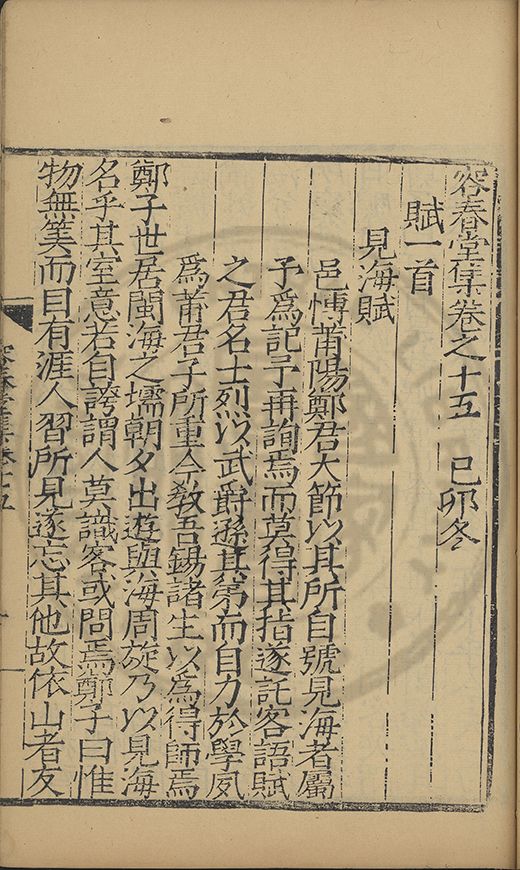 容春堂集卷之十五　己卯冬
賦一首
見海賦
邑愽莆陽鄭君大節以其所自號見海者屬
予爲記予再詢焉而莫得其指遂託客語賦
之君名士烈以武爵遜其弟而自力於學夙
爲莆君子所重今敎吾錫諸生以為得師焉
鄭子世居閩海之壖朝夕出遊與海周旋乃以見海
名乎其室意若自誇謂人莫識客或問焉鄭子曰惟
物無筭而目有涯人習所見遂忘其他故依山者友
容春堂集卷十五